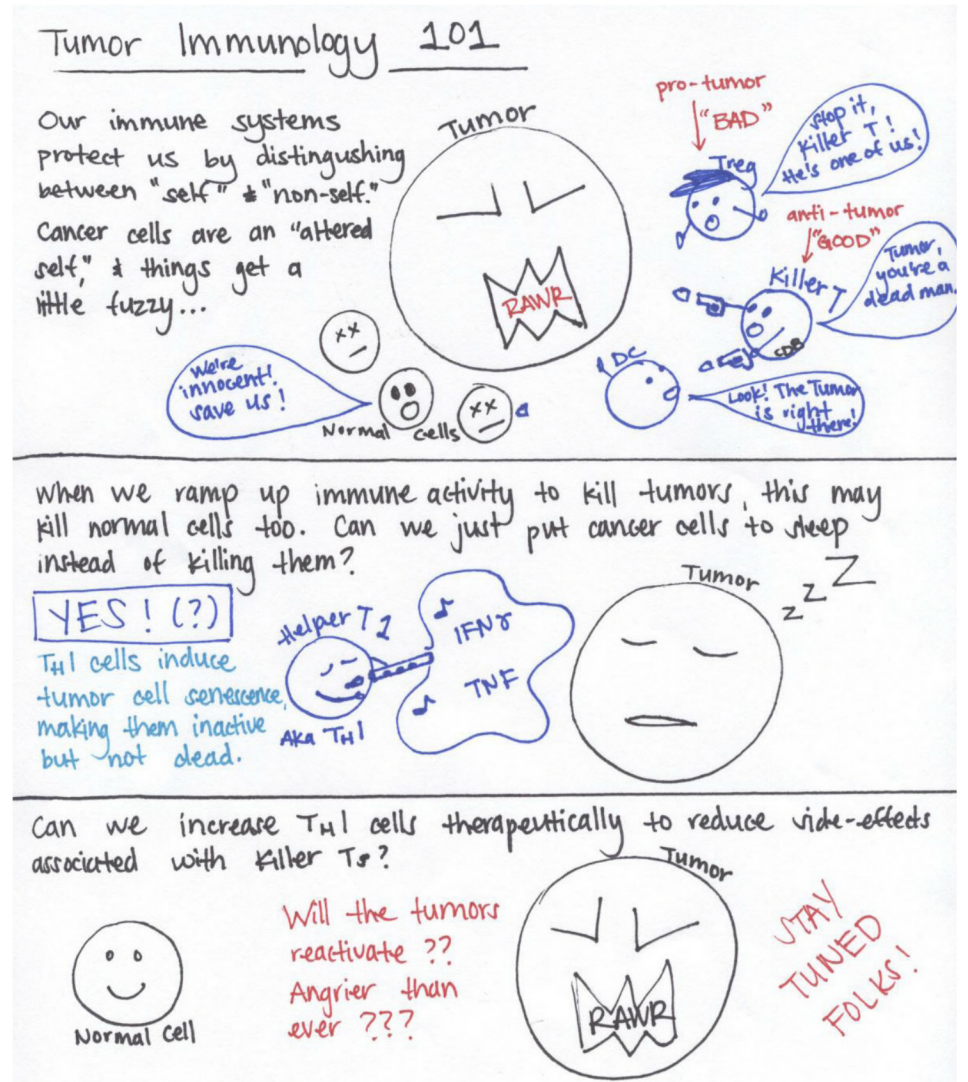 Tumor Immunology 101
Our immune systems
protect us by distingushing
between "self" & "non-self."
Cancer cells are an "altered
self", & things get a
little fuzzy...
Tumor
RAWR
pro-tumor
"BAD"
Treg
Stop it,
Killer T!
He's one of us!
anti-tumor
"GOOD"
Killer T
CD8
Tumor,
you're a
dead man.
DC
Look! The Tumor
is right
there!
We're
innocent!
save us!
xx
xx
Normal cells
When we ramp up immune activity to kill tumors, this may
kill normal cells too. Can we just put cancer cells to sleep
instead of killing them?
YES! (?)
TH1 cells induce
tumor cell senescence,
making them inactive
but not dead.
Helper T1
AKA TH1
IFNγ
TNF
Tumor
z z Z
Can we increase TH1 cells therapeutically to reduce side-effects
associated with Killer Ts?
Normal Cell
Will the tumors
reactivate ??
Angrier than
ever ???
Tumor
RAWR
STAY
TUNED
FOLKS!